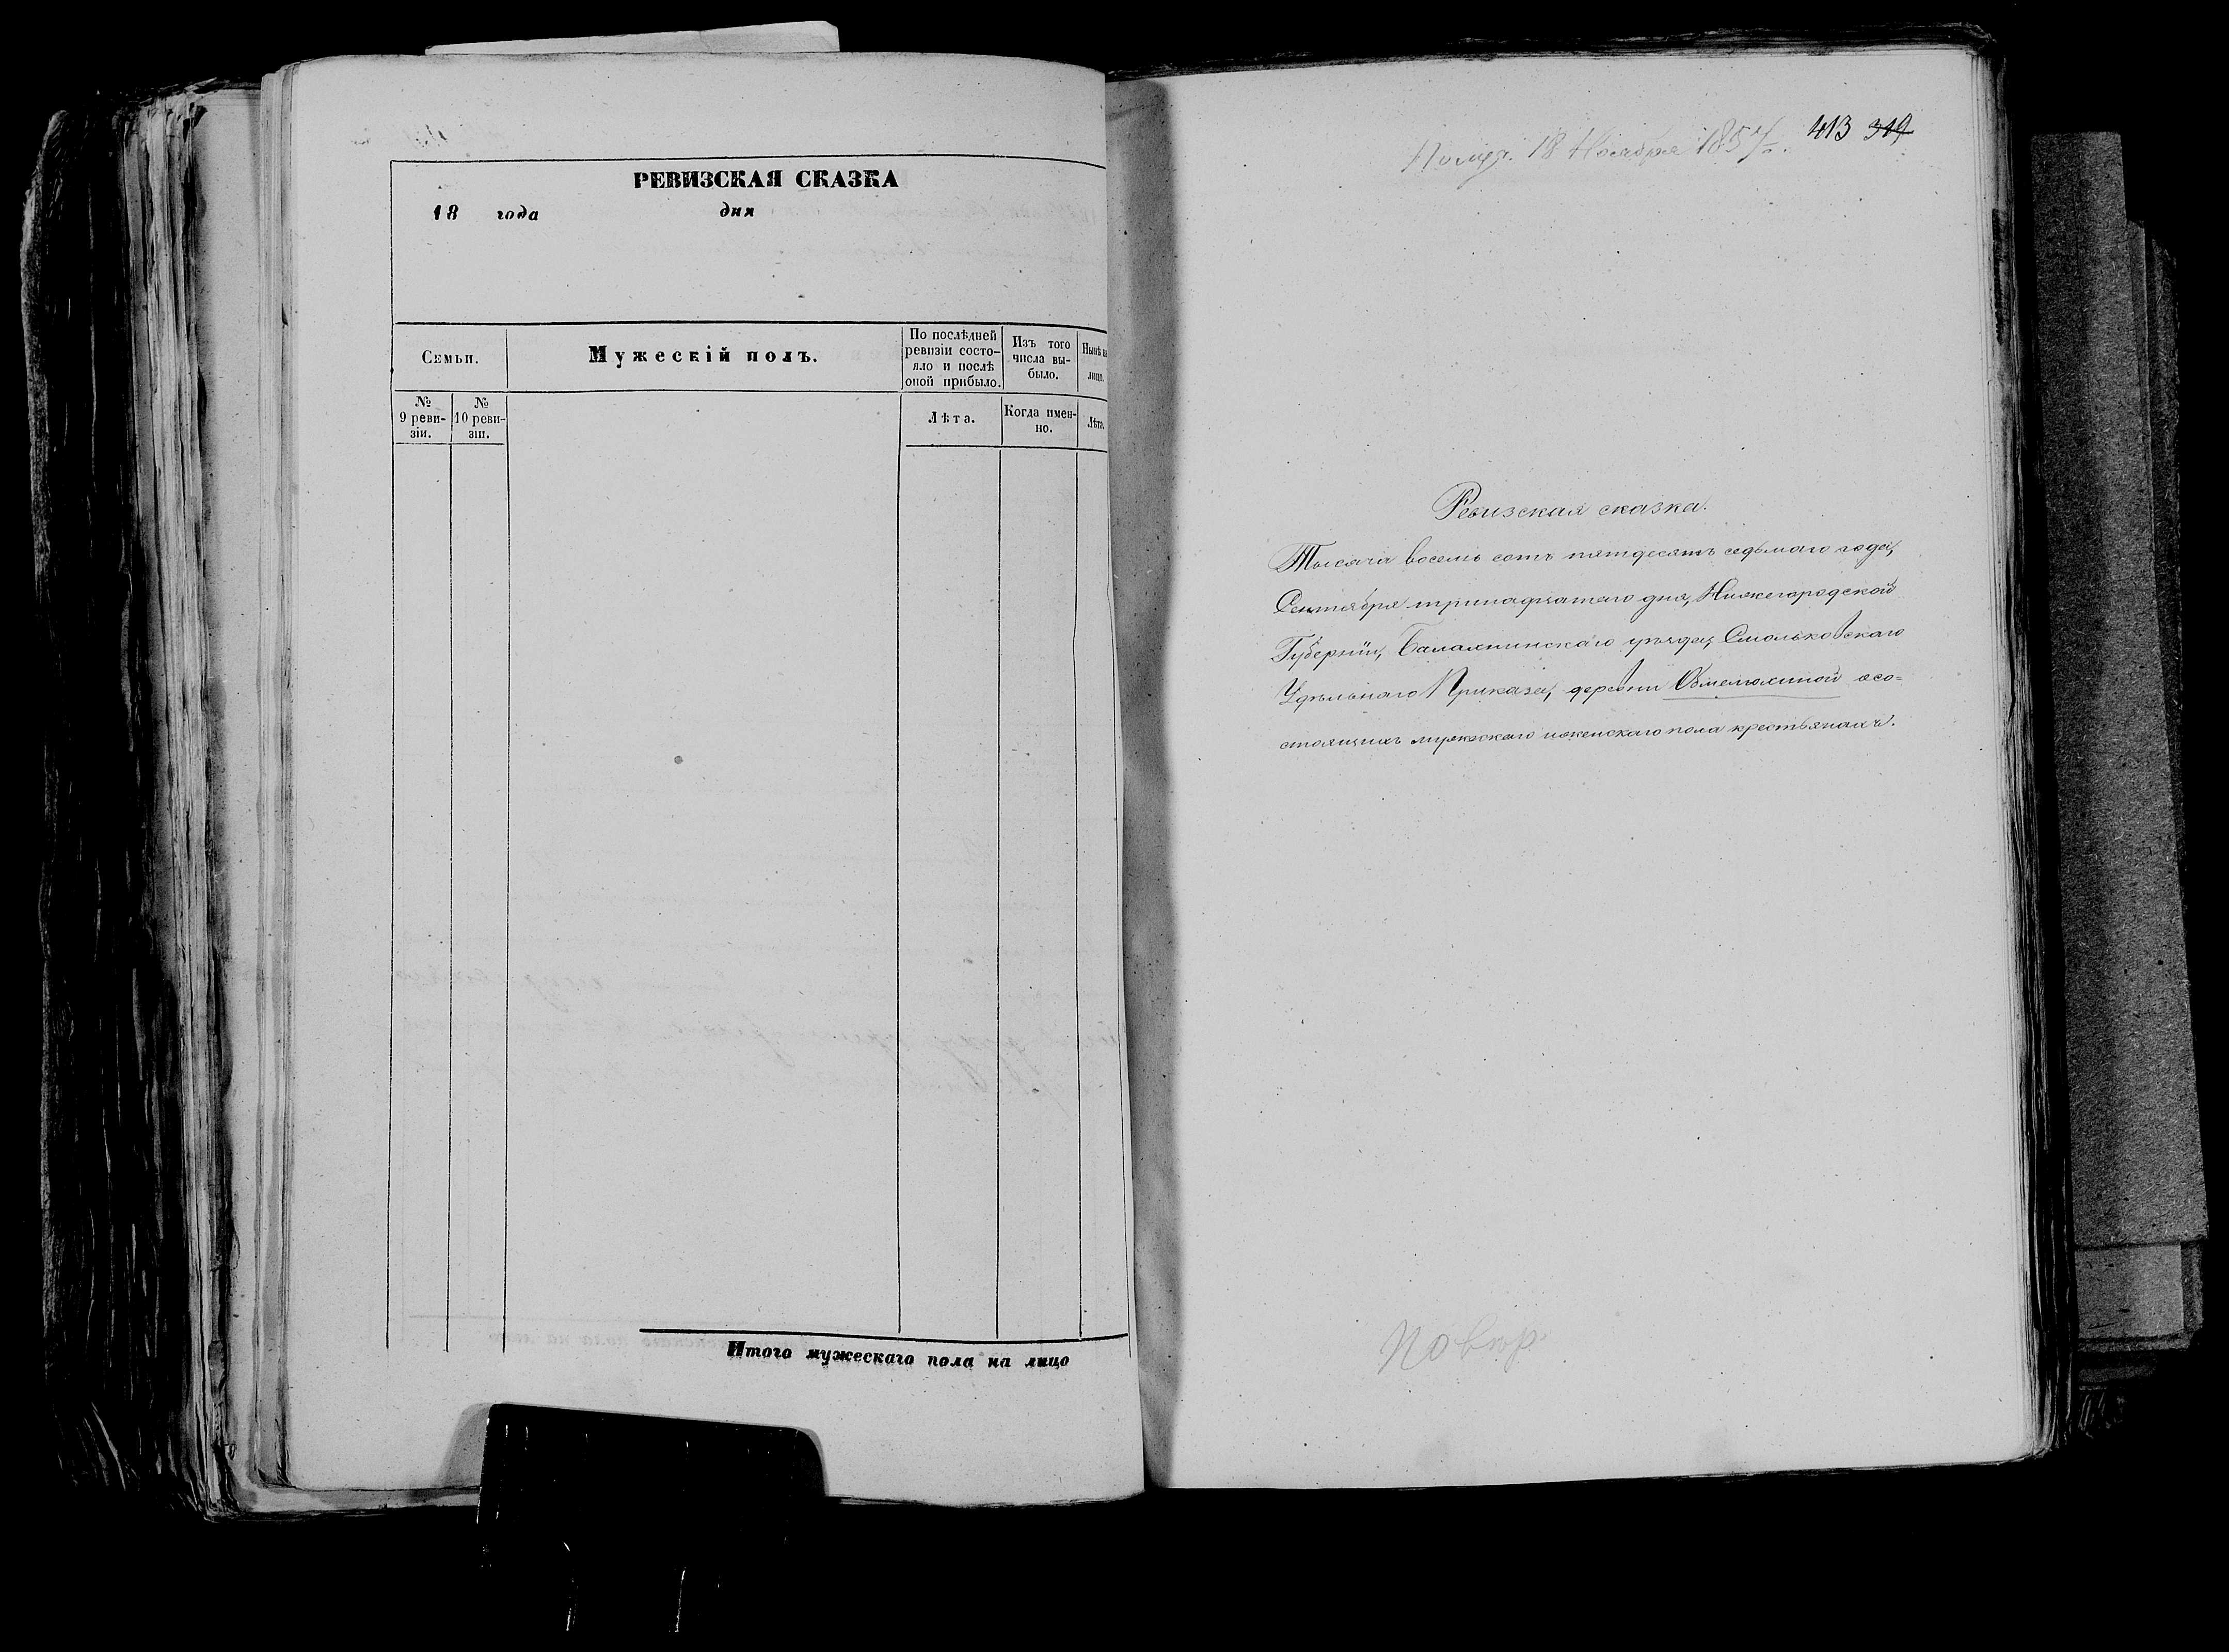 РЕВИЗСКАЯ СКАЗКА
18 года дня
Семьи.
Мужескій полъ.
По послѣдней ревизіи состо-
яло и послѣ
оной прибыло.
Изъ того
числа вы-
было.
Нынѣ на
лицо.
№
9 реви-
зіи.
№
10 реви-
зіи.
Лѣта.
Когда имен-
но.
Лѣта.
Итого мужескаго пола на лицо
18 Ноября 1857.
413 319
Ревизская сказка.
Тысяча восемь сотъ пятдесятъ седьмаго года,
Сентября тринадцатаго дня, Нижегородской
Губерніи, Балахнинскаго уѣзда, Смольковскаго
Удѣльнаго Приказа, деревни осо=
стоящихъ мужескаго и женскаго пола крестьянахъ.